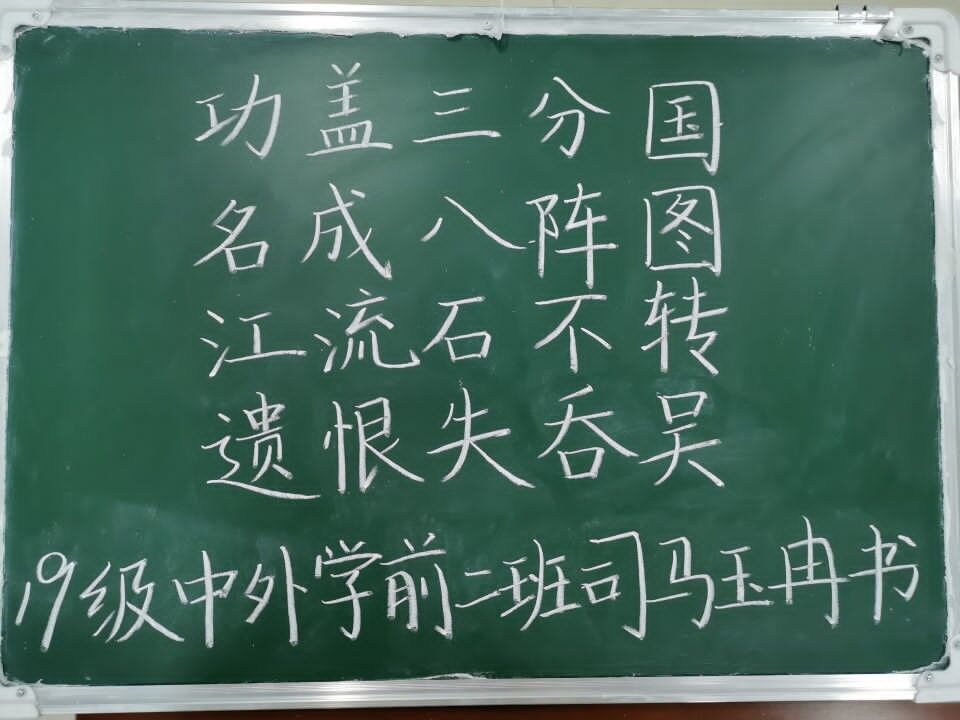 功盖三分国
名成八阵图
江流石不转
遗恨失吞吴
19级中外学前二班司马玉冉书